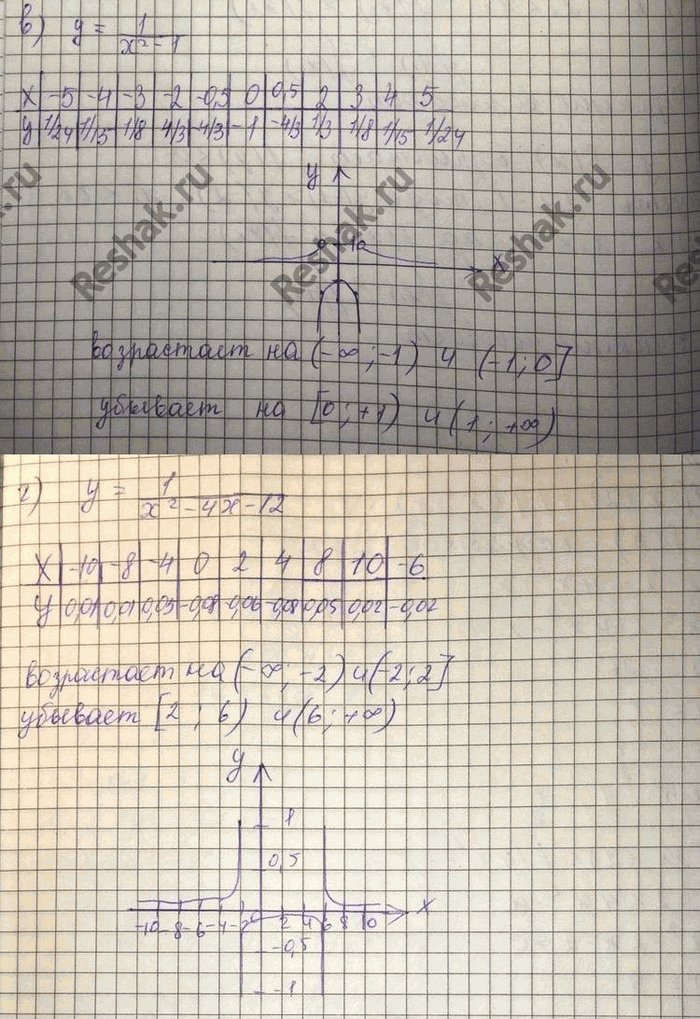 в) y = 1/(x² - 1)
X -5 -4 -3 -2 -0,5 0 0,5 2 3 4 5
y 1/24 1/15 1/8 4/3 -4/3 -1 -4/3 1/3 1/8 1/15 1/24
y
X
возрастает на (-∞; -1) и (-1; 0]
убывает на [0; +1) и (1; +∞)
Reshak.ru
Reshak.ru
Reshak.ru
г) y = 1/(x² - 4x - 12)
X -10 -8 -4 0 2 4 8 10 -6
y 0,01 0,01 0,05 -0,08 -0,06 -0,08 0,05 0,02 -0,02
возрастает на (-∞; -2) и (-2; 2]
убывает [2; 6) и (6; +∞)
y
1
0,5
X
-10 -8 -6 -4 -2 2 4 6 8 10
-0,5
-1